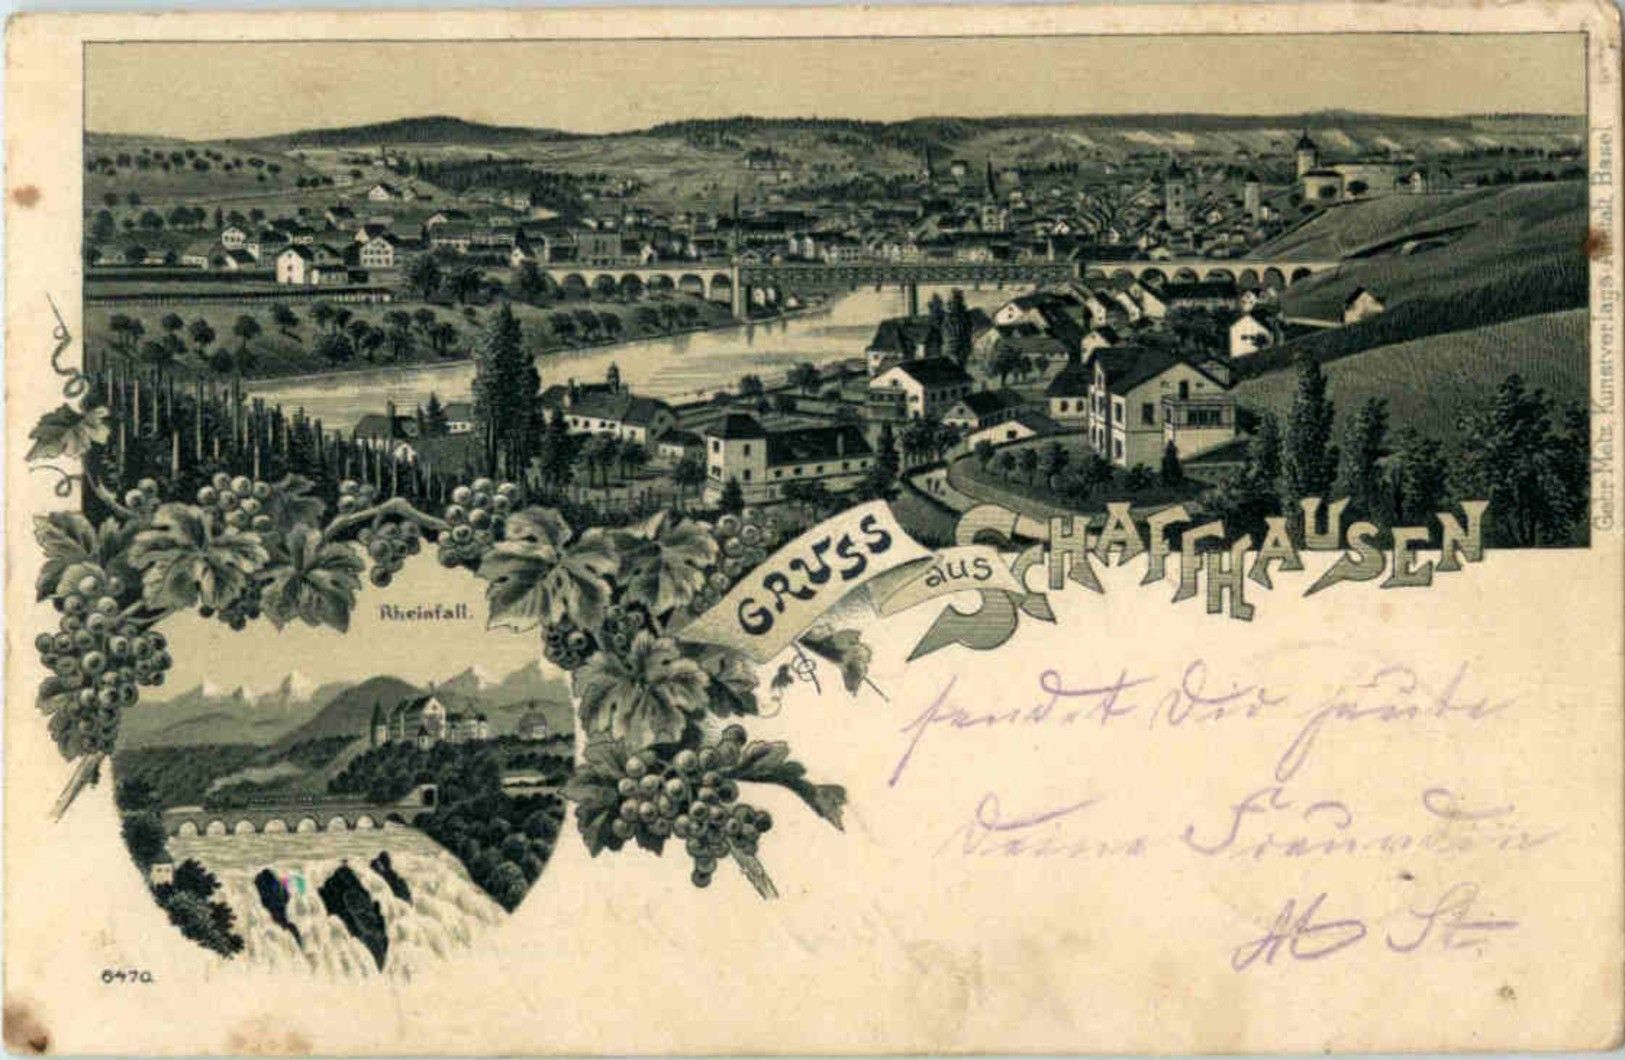 GRUSS aus SCHAFFHAUSEN
Rheinfall.
sendet Dir heute
Deine Freundin
M St.
6470.
Gebr. Metz, Kunstverlags-Anstalt, Basel.